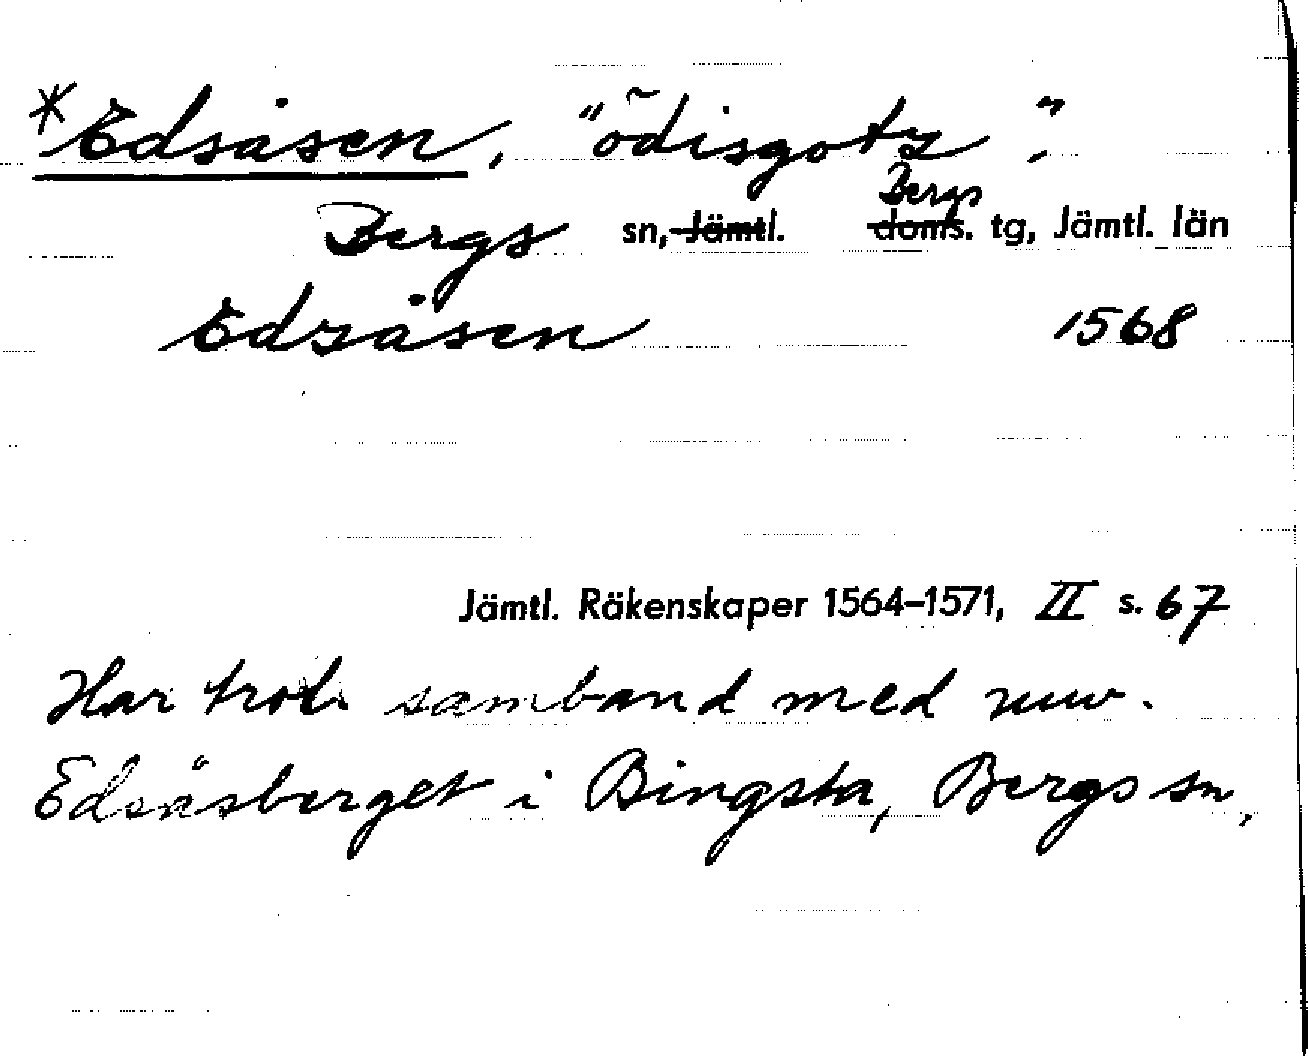 *Edsåsen, "õdisgotz".
Bergs sn, Jämtl. Bergs doms. tg, Jämtl. län
Edzåsen 1568
Jämtl. Räkenskaper 1564–1571, II s. 67
Har trol. samband med nuv.
Edsåsberget i Bingsta, Bergs sn.